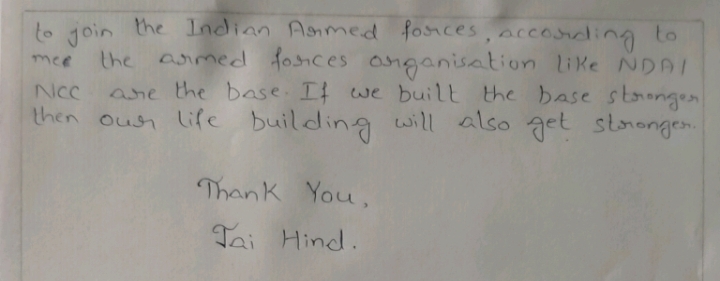 to join the Indian Armed forces, according to
mee the armed forces organisation like NDA/
NCC are the base. If we built the base stronger
then our life building will also get stronger.
Thank You,
Jai Hind.